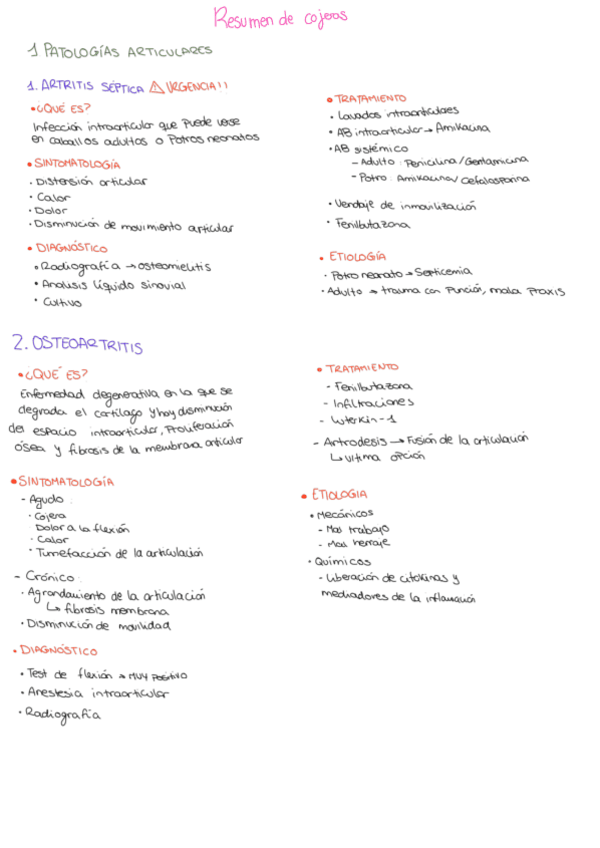 Resumen de cojeras
1 PATOLOGÍAS ARTICULARES
1. ARTRITIS SÉPTICA ⚠ URGENCIA!!
• ¿QUÉ ES?
Infección intraarticular que puede verse
en caballos adultos o Potros neonatos
• SINTOMATOLOGÍA
· Distensión articular
· Calor
· Dolor
· Disminución de movimiento articular
• DIAGNÓSTICO
• Radiografía → osteomielitis
• Analisis líquido sinovial
• Cultivo
• TRATAMIENTO
· Lavados intraarticulares
· AB intraarticular → Amikacina
· AB sistémico
– Adulto: Penicilina/Gentamicina
– Potro: Amikacina/Cefalosporina
· Vendaje de inmovilización
· Fenilbutazona
• ETIOLOGÍA
· Potro neonato → Septicemia
· Adulto → trauma con Punción, mala Praxis
2. OSTEOARTRITIS
• ¿QUÉ ES?
Enfermedad degenerativa en la que se
degrada el cartílago y hay disminución
del espacio intraarticular, Proliferación
ósea y fibrosis de la membrana articular
• SINTOMATOLOGÍA
– Agudo:
· Cojera
Dolor a la flexión
· Calor
· Tumefacción de la articulación
– Crónico:
· Agrandamiento de la articulación
↳ fibrosis membrana
· Disminución de movilidad
• DIAGNÓSTICO
• Test de flexión → MUY Positivo
• Anestesia intraarticular
• Radiografía
• TRATAMIENTO
– Fenilbutazona
– Infiltraciones
– Interkin-1
– Artrodesis → Fusión de la articulación
↳ Ultima opción
• ETIOLOGIA
• Mecánicos
– Mal trabajo
– Mal herraje
• Químicos
– Liberación de citokinas y
mediadores de la inflamación